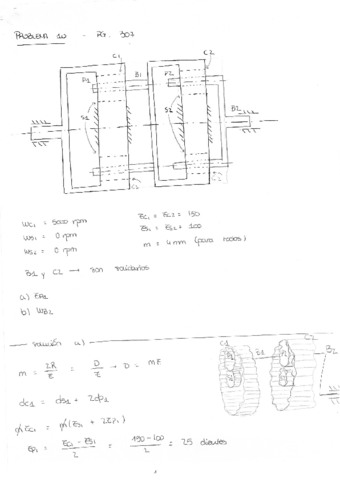 PROBLEMA 10 - Pg. 307
C1
C2
P1
B1
P2
S1
S2
B2
C1
C2
ωC1 = 5000 rpm
ωS1 = 0 rpm
ωS2 = 0 rpm
ZC1 = ZC2 = 150
ZS1 = ZS2 = 100
m = 4 mm (para todos)
B1 y C2 → son solidarios
a) ZP1
b) ωB2
solución a)
C1
B1
C2
B2
m = 2R/Z = D/Z → D = mZ
dC1 = dS1 + 2dP1
m ZC1 = m (ZS1 + 2ZP1)
ZP1 = (ZC1 - ZS1)/2 = (150-100)/2 = 25 dientes